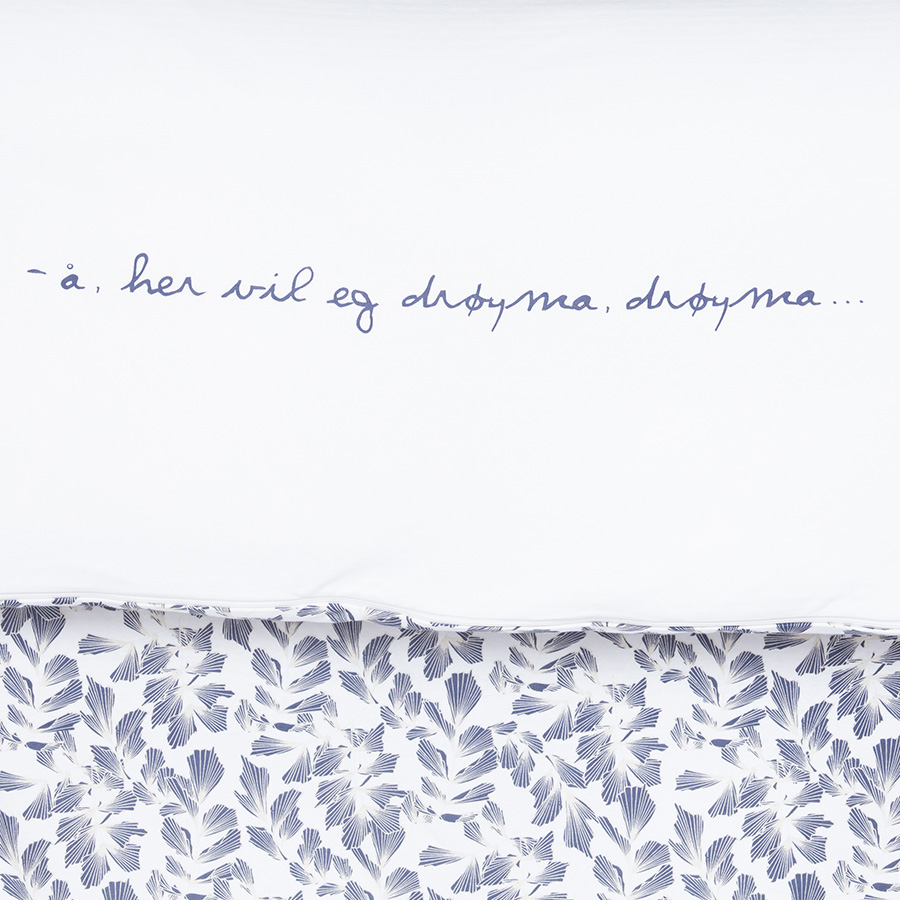 - å, her vil eg drøyma, drøyma...